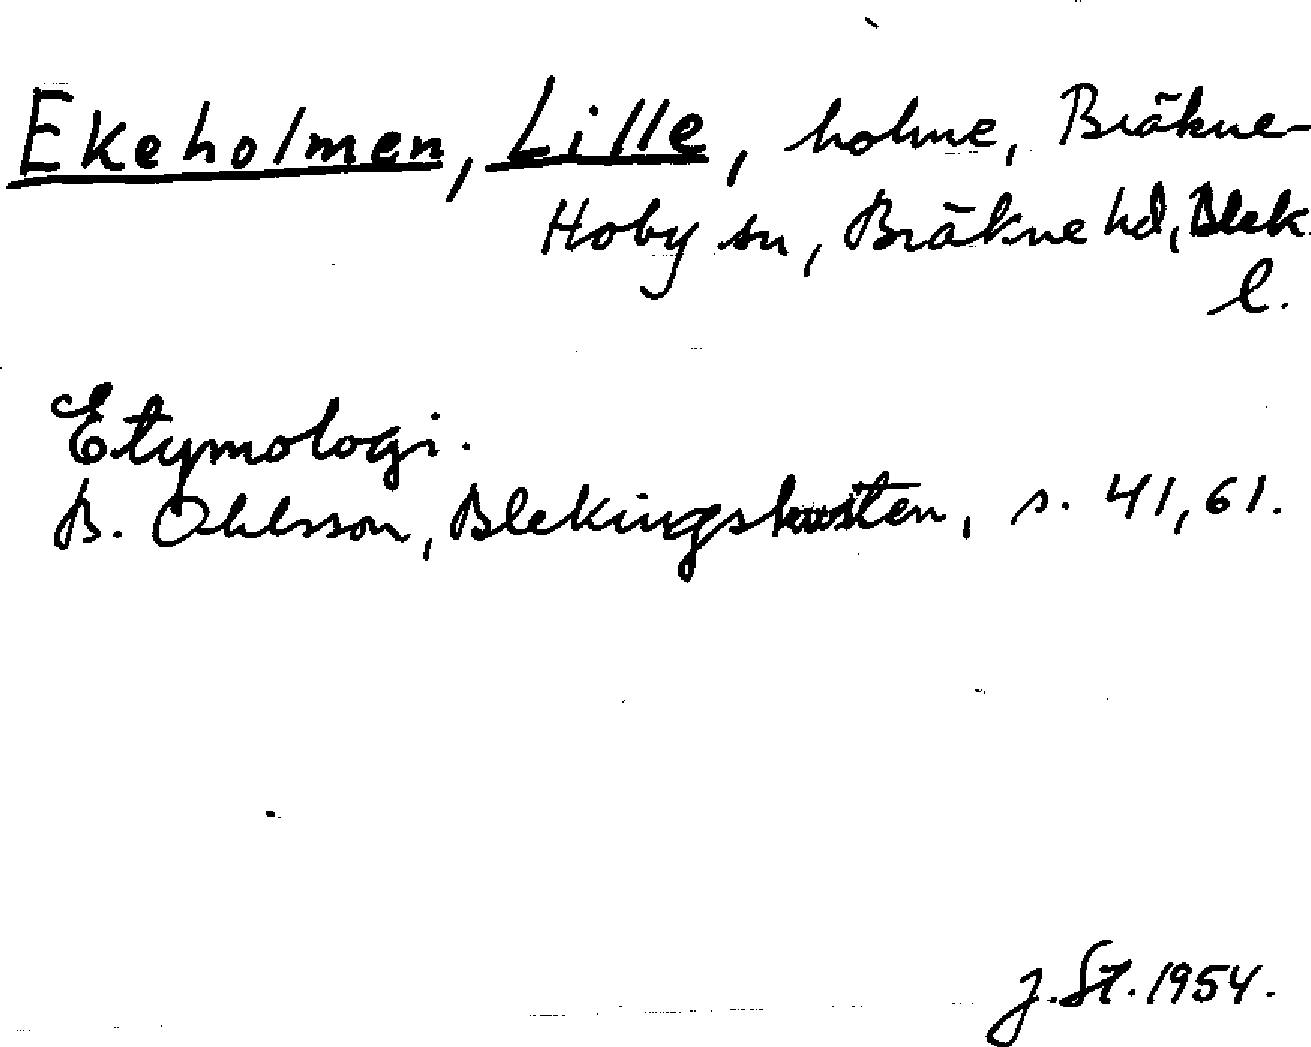 Ekeholmen, Lille, holme, Bräkne-
Hoby sn, Bräkne hd, Blek.
l.
Etymologi.
B. Ohlsson, Blekingskusten, s. 41, 61.
J. St. 1954.